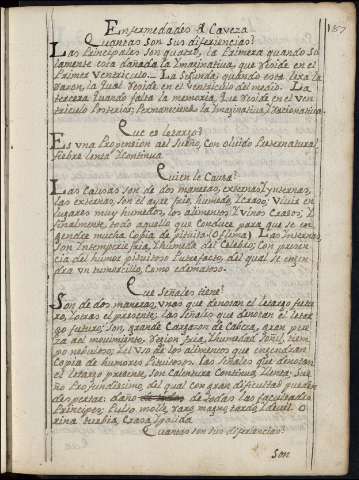 187
Enfermedades d Caveza
Quantas son sus diferencias?
Las Principales son quatro, la Primera quando so
lamente esta dañada la Imaginativa, que reside en el
Primer Ventriculo. La Segunda, quando esta lexa la
razon, la qual reside en el ventriculo del medio. La
tercera quando falta la memoria, que reside en el ven
triculo Posterior, Permaneciendo la Imaginativa, y Ratiosinativa
Que es letargo?
Es una Propension del Sueño, con olvido Preternatural
fiebre lenta y Continua
Quien le Causa?
Las Causas son de dos maneras, externas, y internas,
las externas, son el ayre frio, humedo, y Craso, Vivir en
lugares muy humedos, los alimentos, y Vinos Crasos, y
finalmente, todo aquello que conduce para que se en
gendre mucha Copia de pituita, o flema; Las Internas,
son Intemperie fria, y humeda del Celebro, con presen
cia del humor pituitoso Putrefacto, del qual se engen
dra un tumorcillo, como edematoso.
Que Señales tiene?
Son de dos maneras, unas que denotan el letargo futu
ro, y otras el presente, las señales que denotan el letar
go futuro, son, grande Cargazon de Cabeza, gran pere
za del movimiento, region fria, y humeda, Señil, tiem
po nebuloso, el uso de los alimentos que engendran
Copia de humores Pituitosos. las Señales que denotan
el letargo presente, son Calentura Continua, y lenta; Sue
ño Profundissimo, del qual con gran dificultad pueden
despertar: daño de todas las facultades
Principes; Pulso molle, raro, magno, tardo, y devil. o
rina turbia, Crasa, y palida
Quantas son sus diferencias?
Son